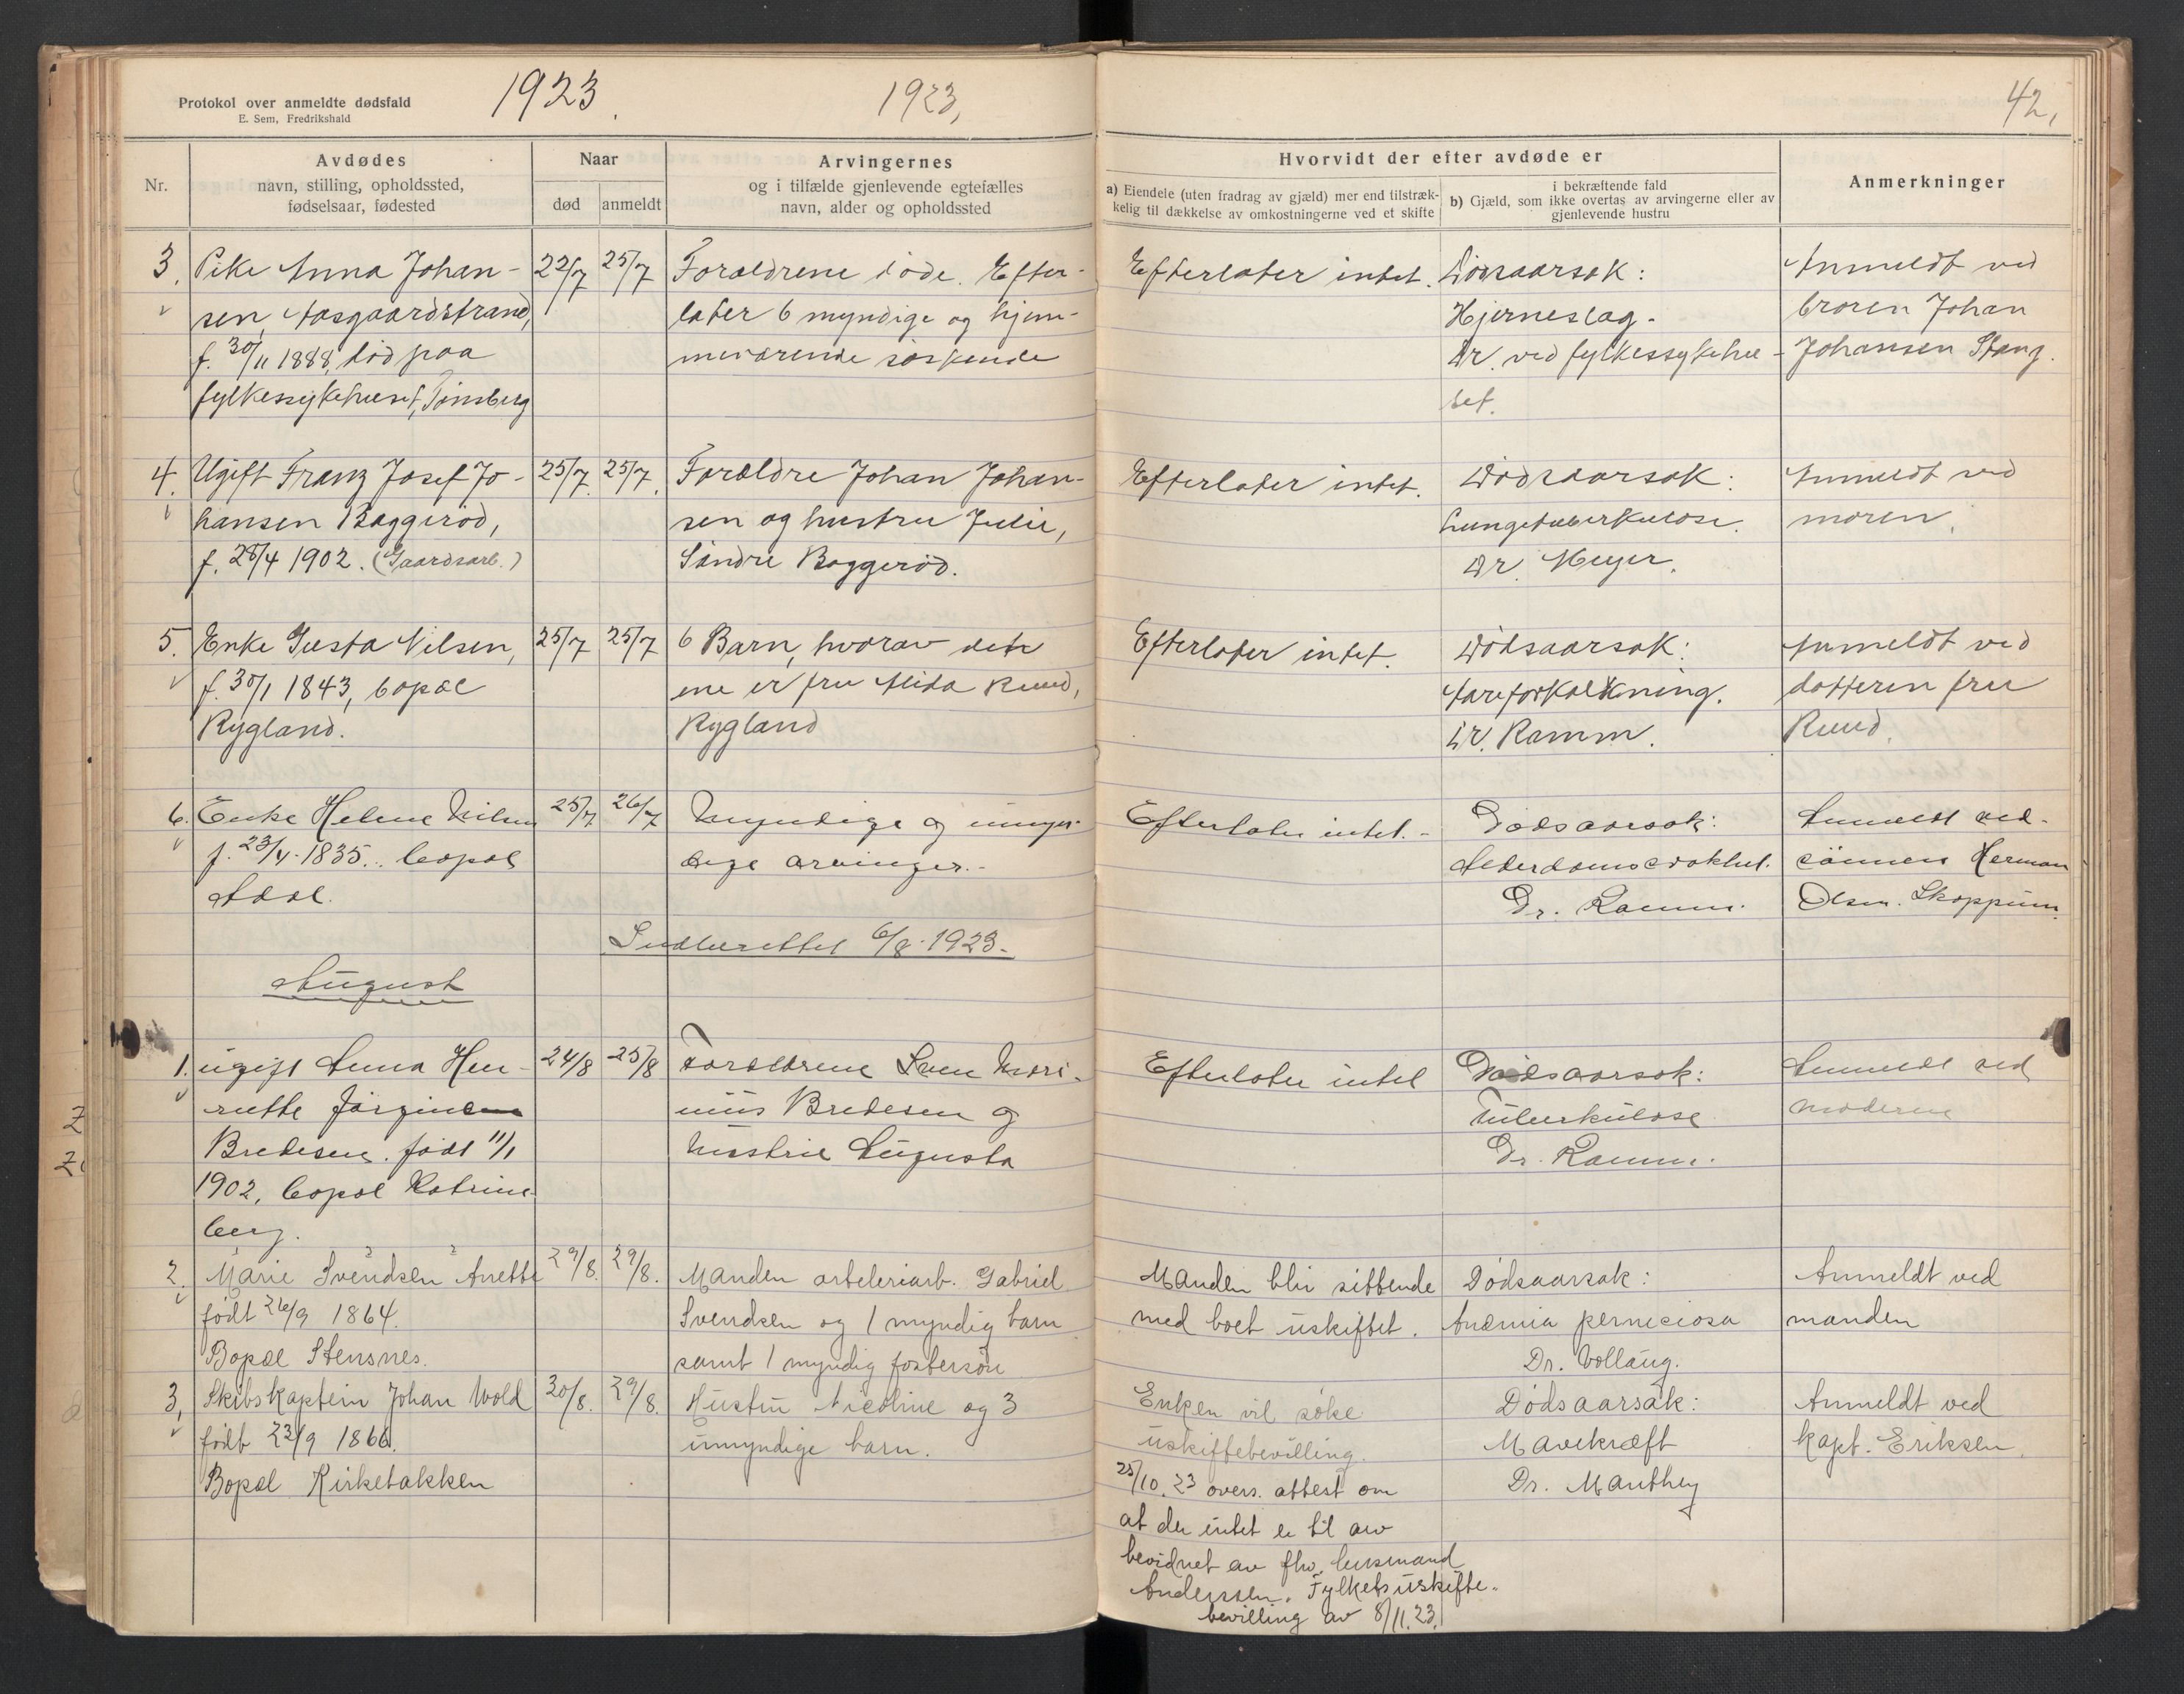 Protokol over anmeldte dødsfald
E. Sem, Fredrikshald
1923.
1923,
42,
Nr.
Avdødes
navn, stilling, opholdssted,
fødselsaar, fødested
Naar
død
anmeldt
Arvingernes
og i tilfælde gjenlevende egtefælles
navn, alder og opholdssted
Hvorvidt der efter avdøde er
a) Eiendele (uten fradrag av gjæld) mer end tilstræk-
kelig til dækkelse av omkostningerne ved et skifte
i bekræftende fald
b) Gjæld, som ikke overtas av arvingerne eller av
gjenlevende hustru
Anmerkninger
3. Pike Anna Johan-
sen, Aasgaardstrand,
f. 30/11 1888, død paa
fylkessykehuset, Tønsberg
22/7
25/7
Forældrene døde. Efter-
later 6 myndige og hjem-
meværende søskende
Efterlater intet.
Dødsaarsak:
Hjerneslag.
Dr. ved fylkessykehu-
set.
Anmeldt ved
broren Johan
Johansen Stang.
4. Ugift Franz Josef Jo-
hansen Baggerød,
f. 28/4 1902. (Gaardsarb.)
25/7.
25/7.
Forældre Johan Johan-
sen og hustru Julie,
Søndre Baggerød.
Efterlater intet.
Dødsaarsak:
Lungetuberkulose.
Dr. Meyer.
Anmeldt ved
moren.
5. Enke Gusta Nilsen,
f. 30/1 1843, bopæl
Rygland.
25/7
25/7
6 Barn, hvorav det
ene er fru Alida Ruud,
Rygland
Efterlater intet.
Dødsaarsak:
Aareforkalkning.
Dr. Ramm.
Anmeldt ved
datteren fru
Ruud.
6. Enke Helene Nilsen
f. 23/4. 1835. bopæl
Adal.
25/7
26/7
Myndige og umyn-
dige arvinger.-
Efterlater intet.-
Dødsaarsak:
Alderdomssvakhet.
Dr. Ramm.
Anmeldt ved
sønnen Herman
Olsen. Skoppum.
Indberettet 6/8. 1923.-
August
1. ugift Anna Hen-
riette Jørgine
Bredesen. født 11/1
1902, bopæl Katrine-
berg.
24/8
25/8
Forældrene Sven Mari-
nius Bredesen og
hustru Augusta
Efterlater intet
Dødsaarsak:
Tuberkulose
Dr. Ramm.
Anmeldt ved
moderen
2. Marie Svendsen Anette
født 26/9 1864.
Bopæl Stensnes.
29/8.
29/8.
Manden arteleriarb. Gabriel
Svendsen og 1 myndig barn
samt 1 myndig fostersøn
Manden blir sittende
med boet uskiftet.
Dødsaarsak:
Anæmia perneciosa
Dr. Vollaug.
Anmeldt ved
manden
3, Skibskaptein Johan Wold
født 23/9 1866.
Bopæl Kirkebakken
20/8.
29/8.
Hustru Nicoline og 3
umyndige barn.
Enken vil søke
uskiftebevilling.
25/10. 23 overs. attest om
at der intet er til arv
bevidnet av fhv. lensmand
Anderssen. Fylkets uskifte-
bevilling av 8/11.23.
Dødsaarsak:
Mavekræft
Dr. Manthey
Anmeldt ved
kapt. Eriksen.